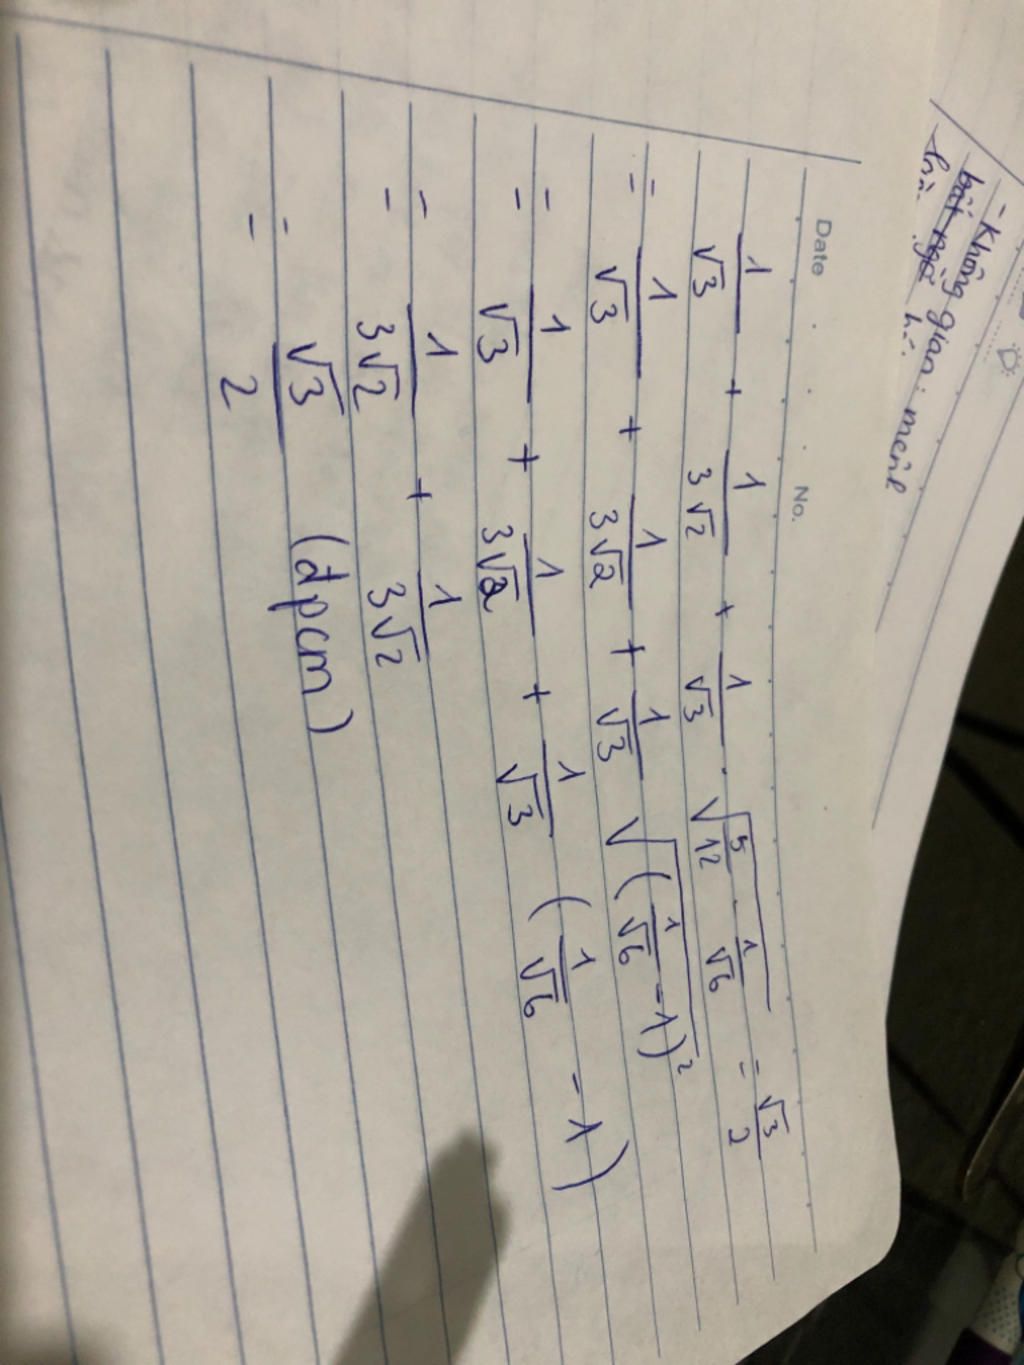 - Không gian: mênh
Date No.
1/√3 + 1/3√2 + 1/√3 . √(5/12 - 1/√6) = √3/2
= 1/√3 + 1/3√2 + 1/√3 √((1/√6 - 1)²)
= 1/√3 + 1/3√2 + 1/√3 (1/√6 - 1)
= 1/3√2 + 1/3√2
= √3/2 (đpcm)